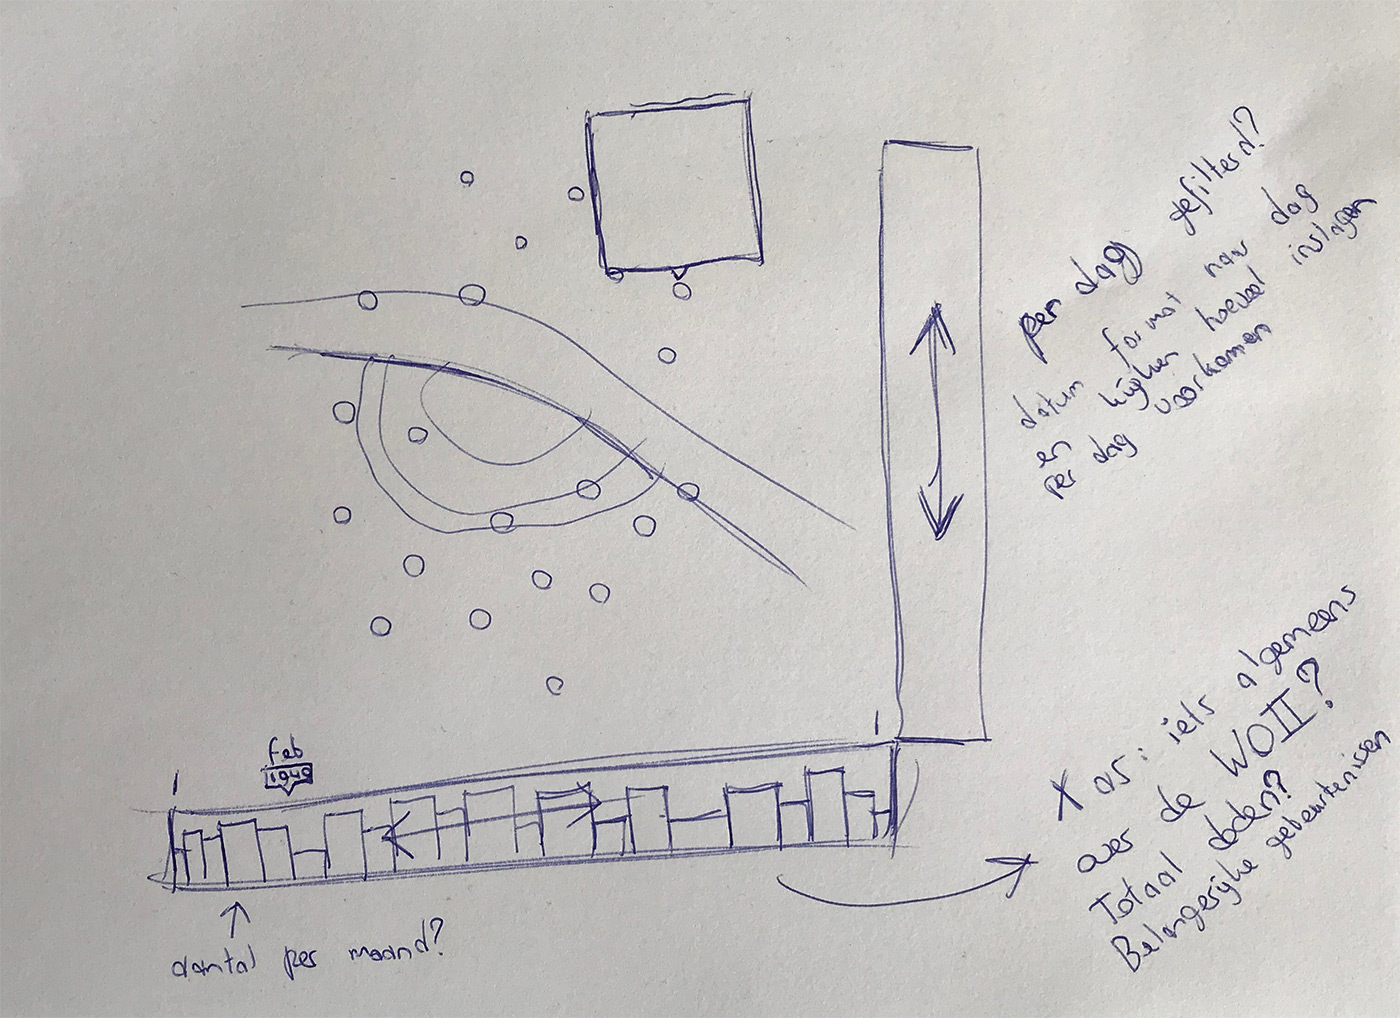 per dag gefilterd?
datum format naar dag
en kijken hoeveel inslagen
per dag voorkomen
feb
1940
X as: iets algemeens
over de WOII?
Totaal doden?
Belangerijke gebeurtenissen
aantal per maand?